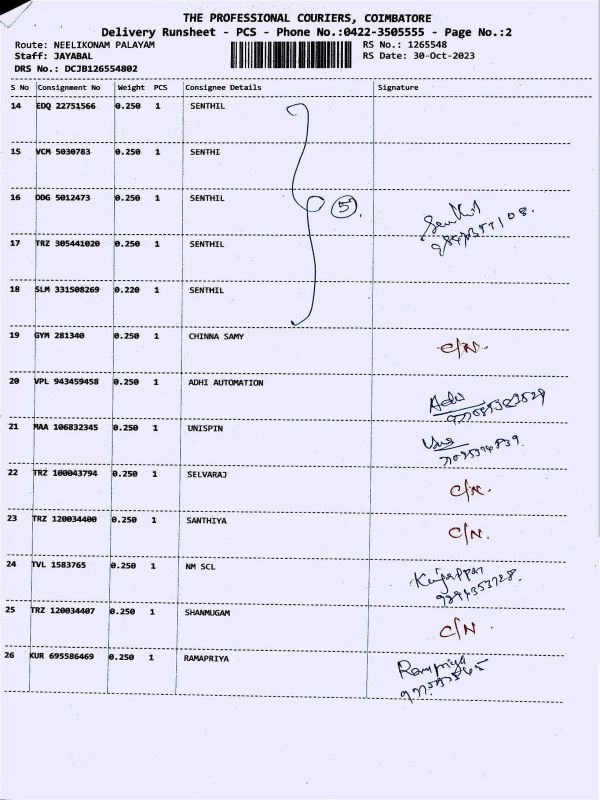 THE PROFESSIONAL COURIERS, COIMBATORE
Delivery Runsheet - PCS - Phone No.:0422-3505555 - Page No.:2
Route: NEELIKONAM PALAYAM
RS No.: 1265548
Staff: JAYABAL
RS Date: 30-Oct-2023
DRS No.: DCJB126554802
S No Consignment No Weight PCS Consignee Details Signature
14 EDQ 22751566 0.250 1 SENTHIL
15 VCM 5030783 0.250 1 SENTHI
16 DDG 5012473 0.250 1 SENTHIL
5
Senthil
17 TRZ 305441020 0.250 1 SENTHIL
18 SLM 331508269 0.220 1 SENTHIL
19 GYM 281340 0.250 1 CHINNA SAMY C/N.
20 VPL 943459458 0.250 1 ADHI AUTOMATION
21 MAA 106832345 0.250 1 UNISPIN
22 TRZ 100043794 0.250 1 SELVARAJ C/N.
23 TRZ 120034400 0.250 1 SANTHIYA C/N.
24 TVL 1583765 0.250 1 NM SCL
25 TRZ 120034407 0.250 1 SHANMUGAM C/N
26 KUR 695586469 0.250 1 RAMAPRIYA Rampriya